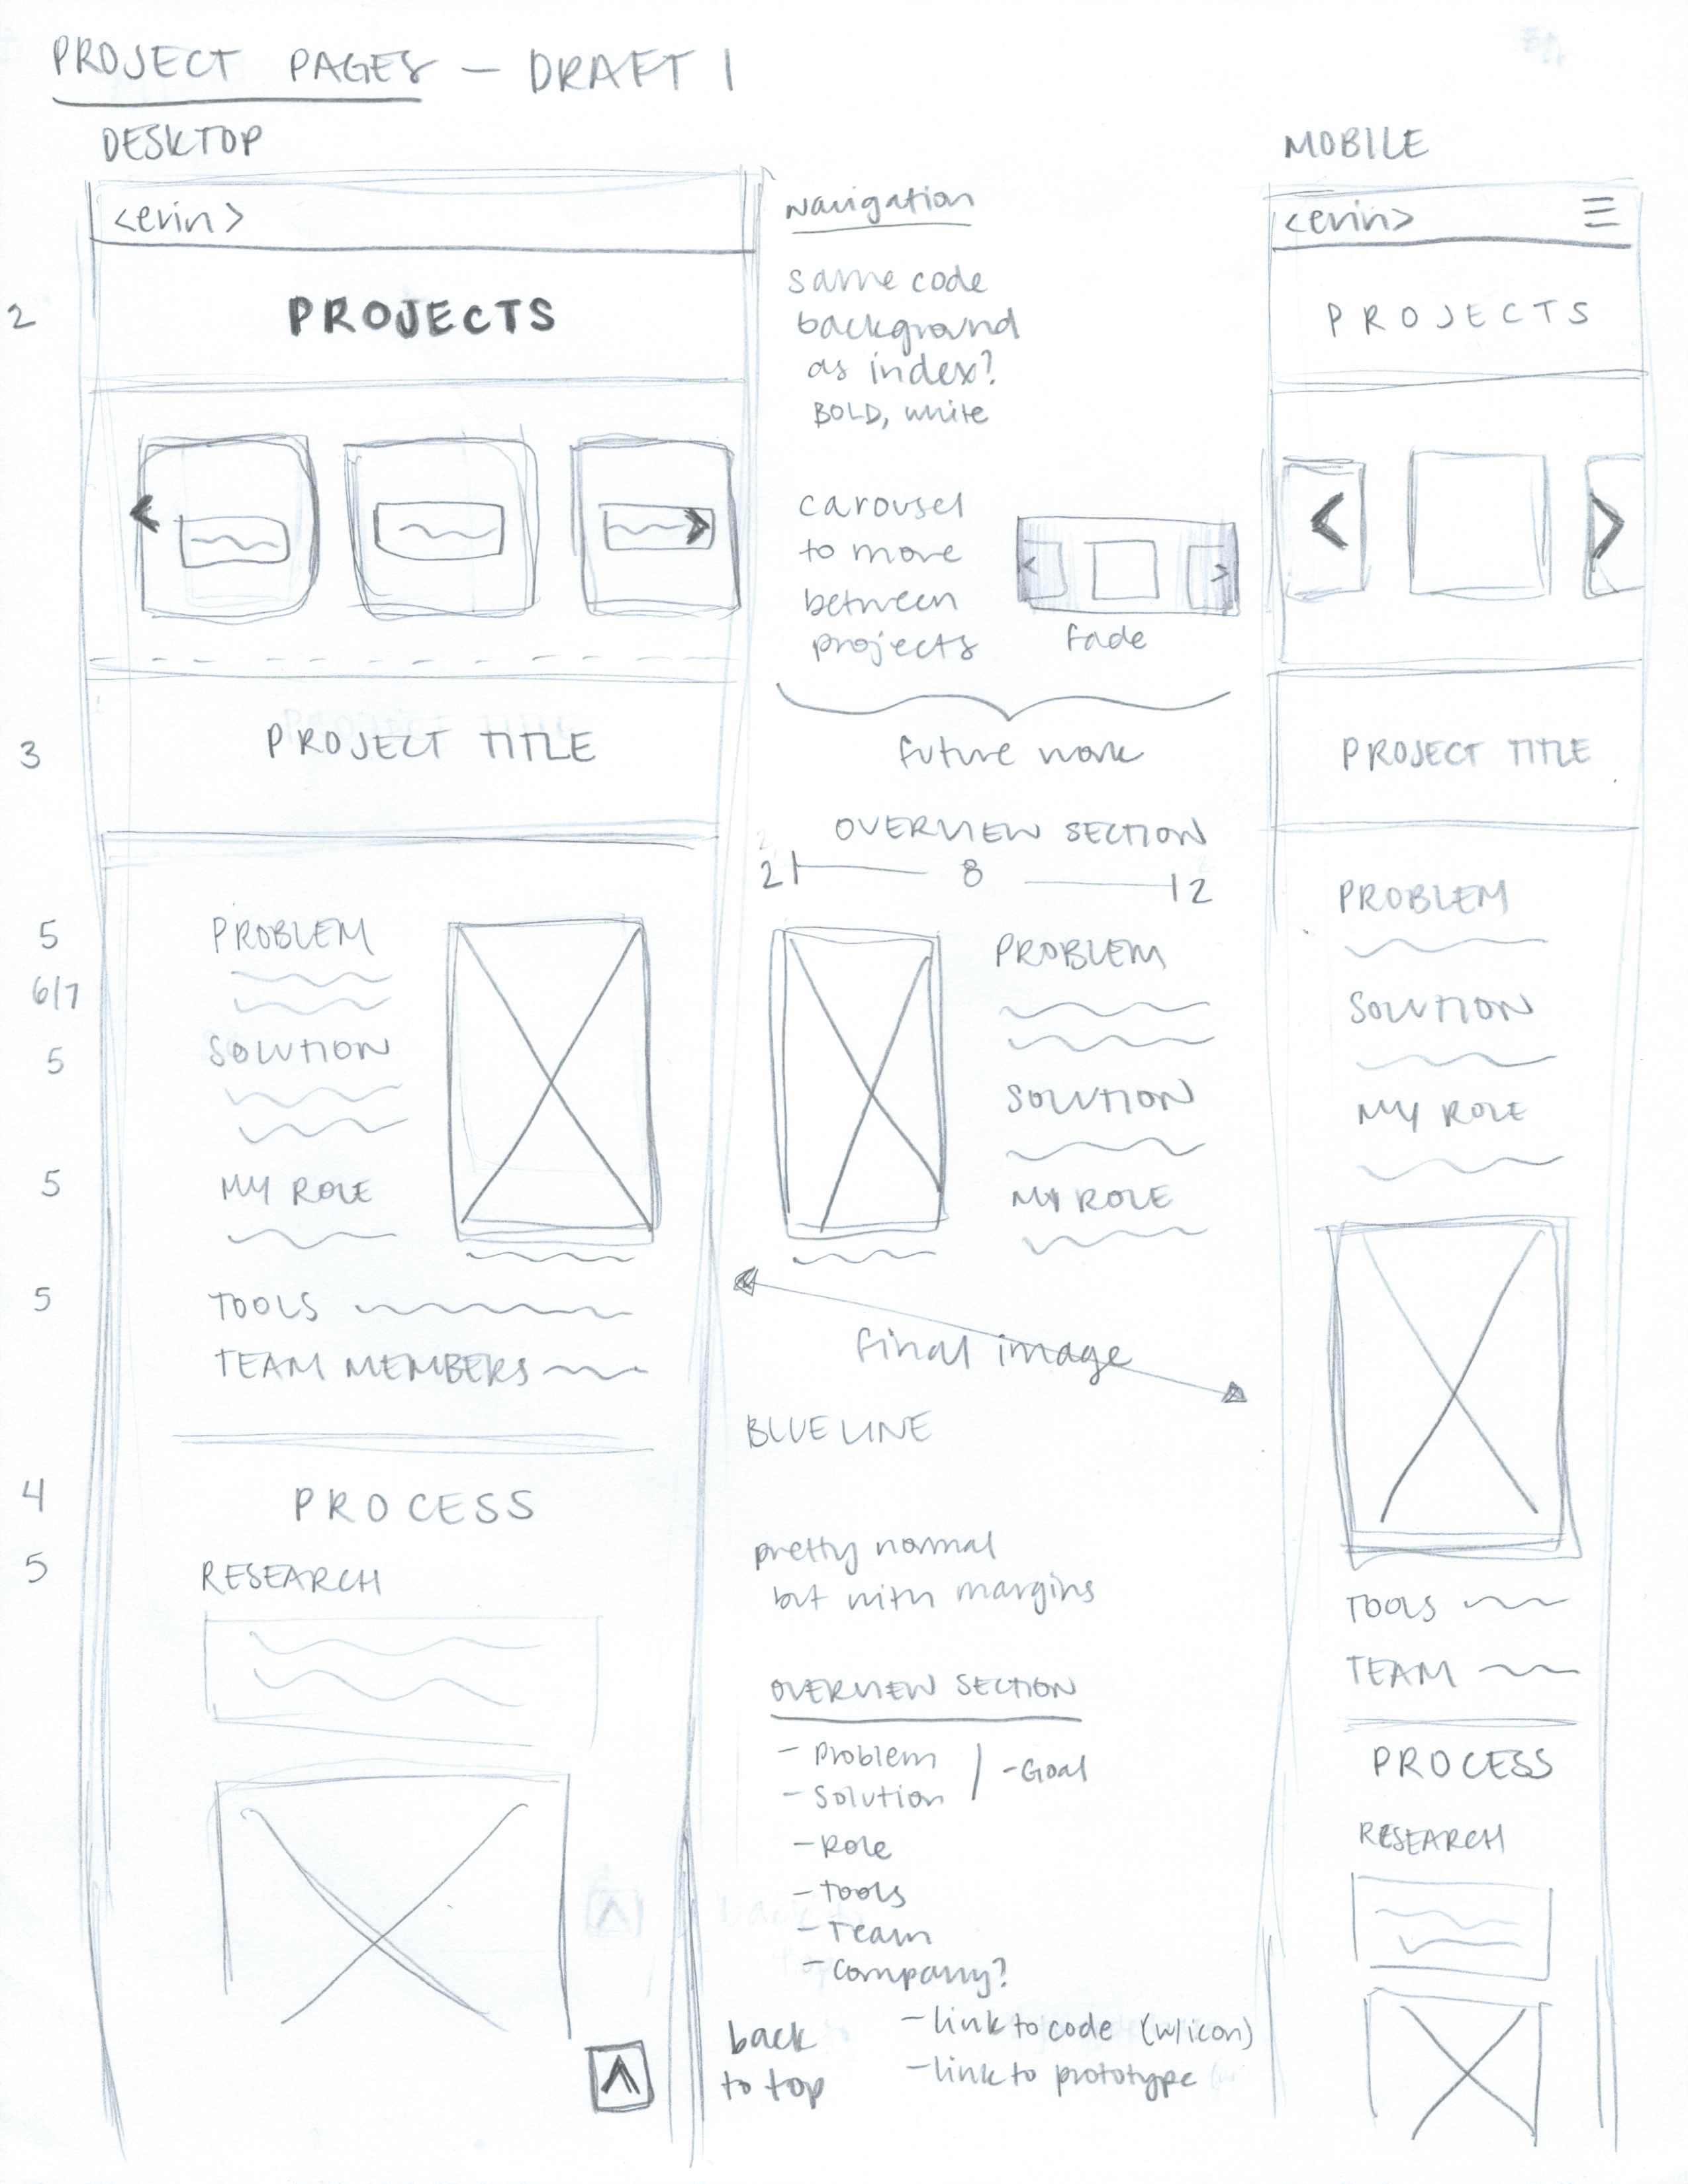 PROJECT PAGES — DRAFT 1
DESKTOP
<erin>
2
PROJECTS
<
>
3
PROJECT TITLE
5
PROBLEM
6/7
5
SOLUTION
5
MY ROLE
5
TOOLS
TEAM MEMBERS
4
PROCESS
5
RESEARCH
Navigation
same code
background
as index?
BOLD, white
carousel
to more
between
projects
< >
fade
future work
OVERVIEW SECTION
2 8 2
PROBLEM
SOLUTION
MY ROLE
final image
BLUE LINE
pretty normal
but with margins
OVERVIEW SECTION
- Problem
- Solution
- Goal
- Role
- Tools
- Team
- Company?
- link to code (w/icon)
- link to prototype
back
to top
MOBILE
<erin>
PROJECTS
< >
PROJECT TITLE
PROBLEM
SOLUTION
MY ROLE
TOOLS
TEAM
PROCESS
RESEARCH